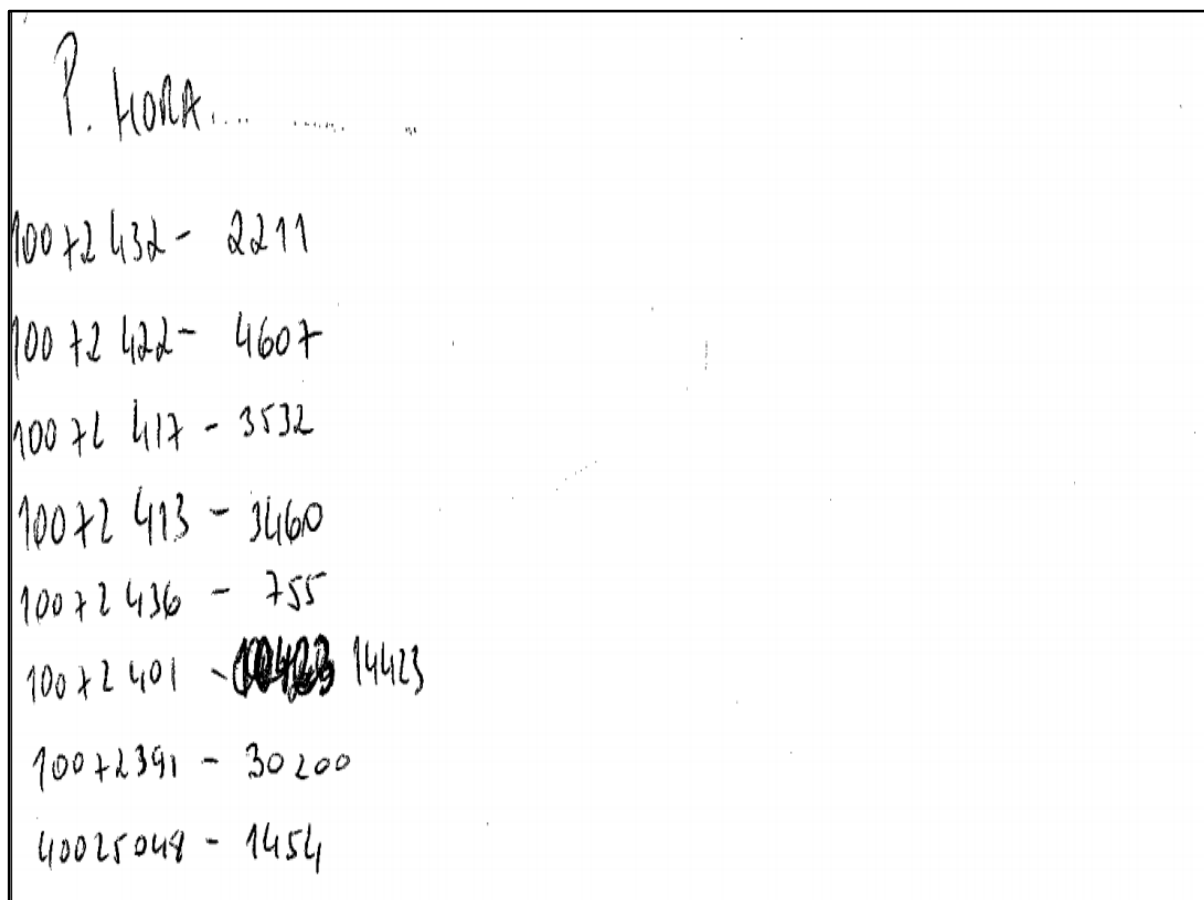 P. HORA...
10072432 - 2211
10072422 - 4607
10072417 - 3532
10072413 - 3460
10072436 - 755
10072401 - 14423
10072391 - 30200
40025048 - 1454